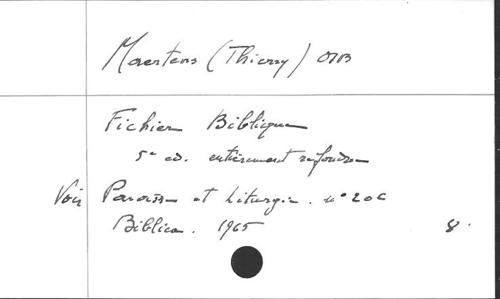 Maertens (Thierry) OSB
Fichier Biblique
5e ed. entièrement refondue
Voir Paroisse et Liturgie. n° 20c
Biblica. 1965 8.